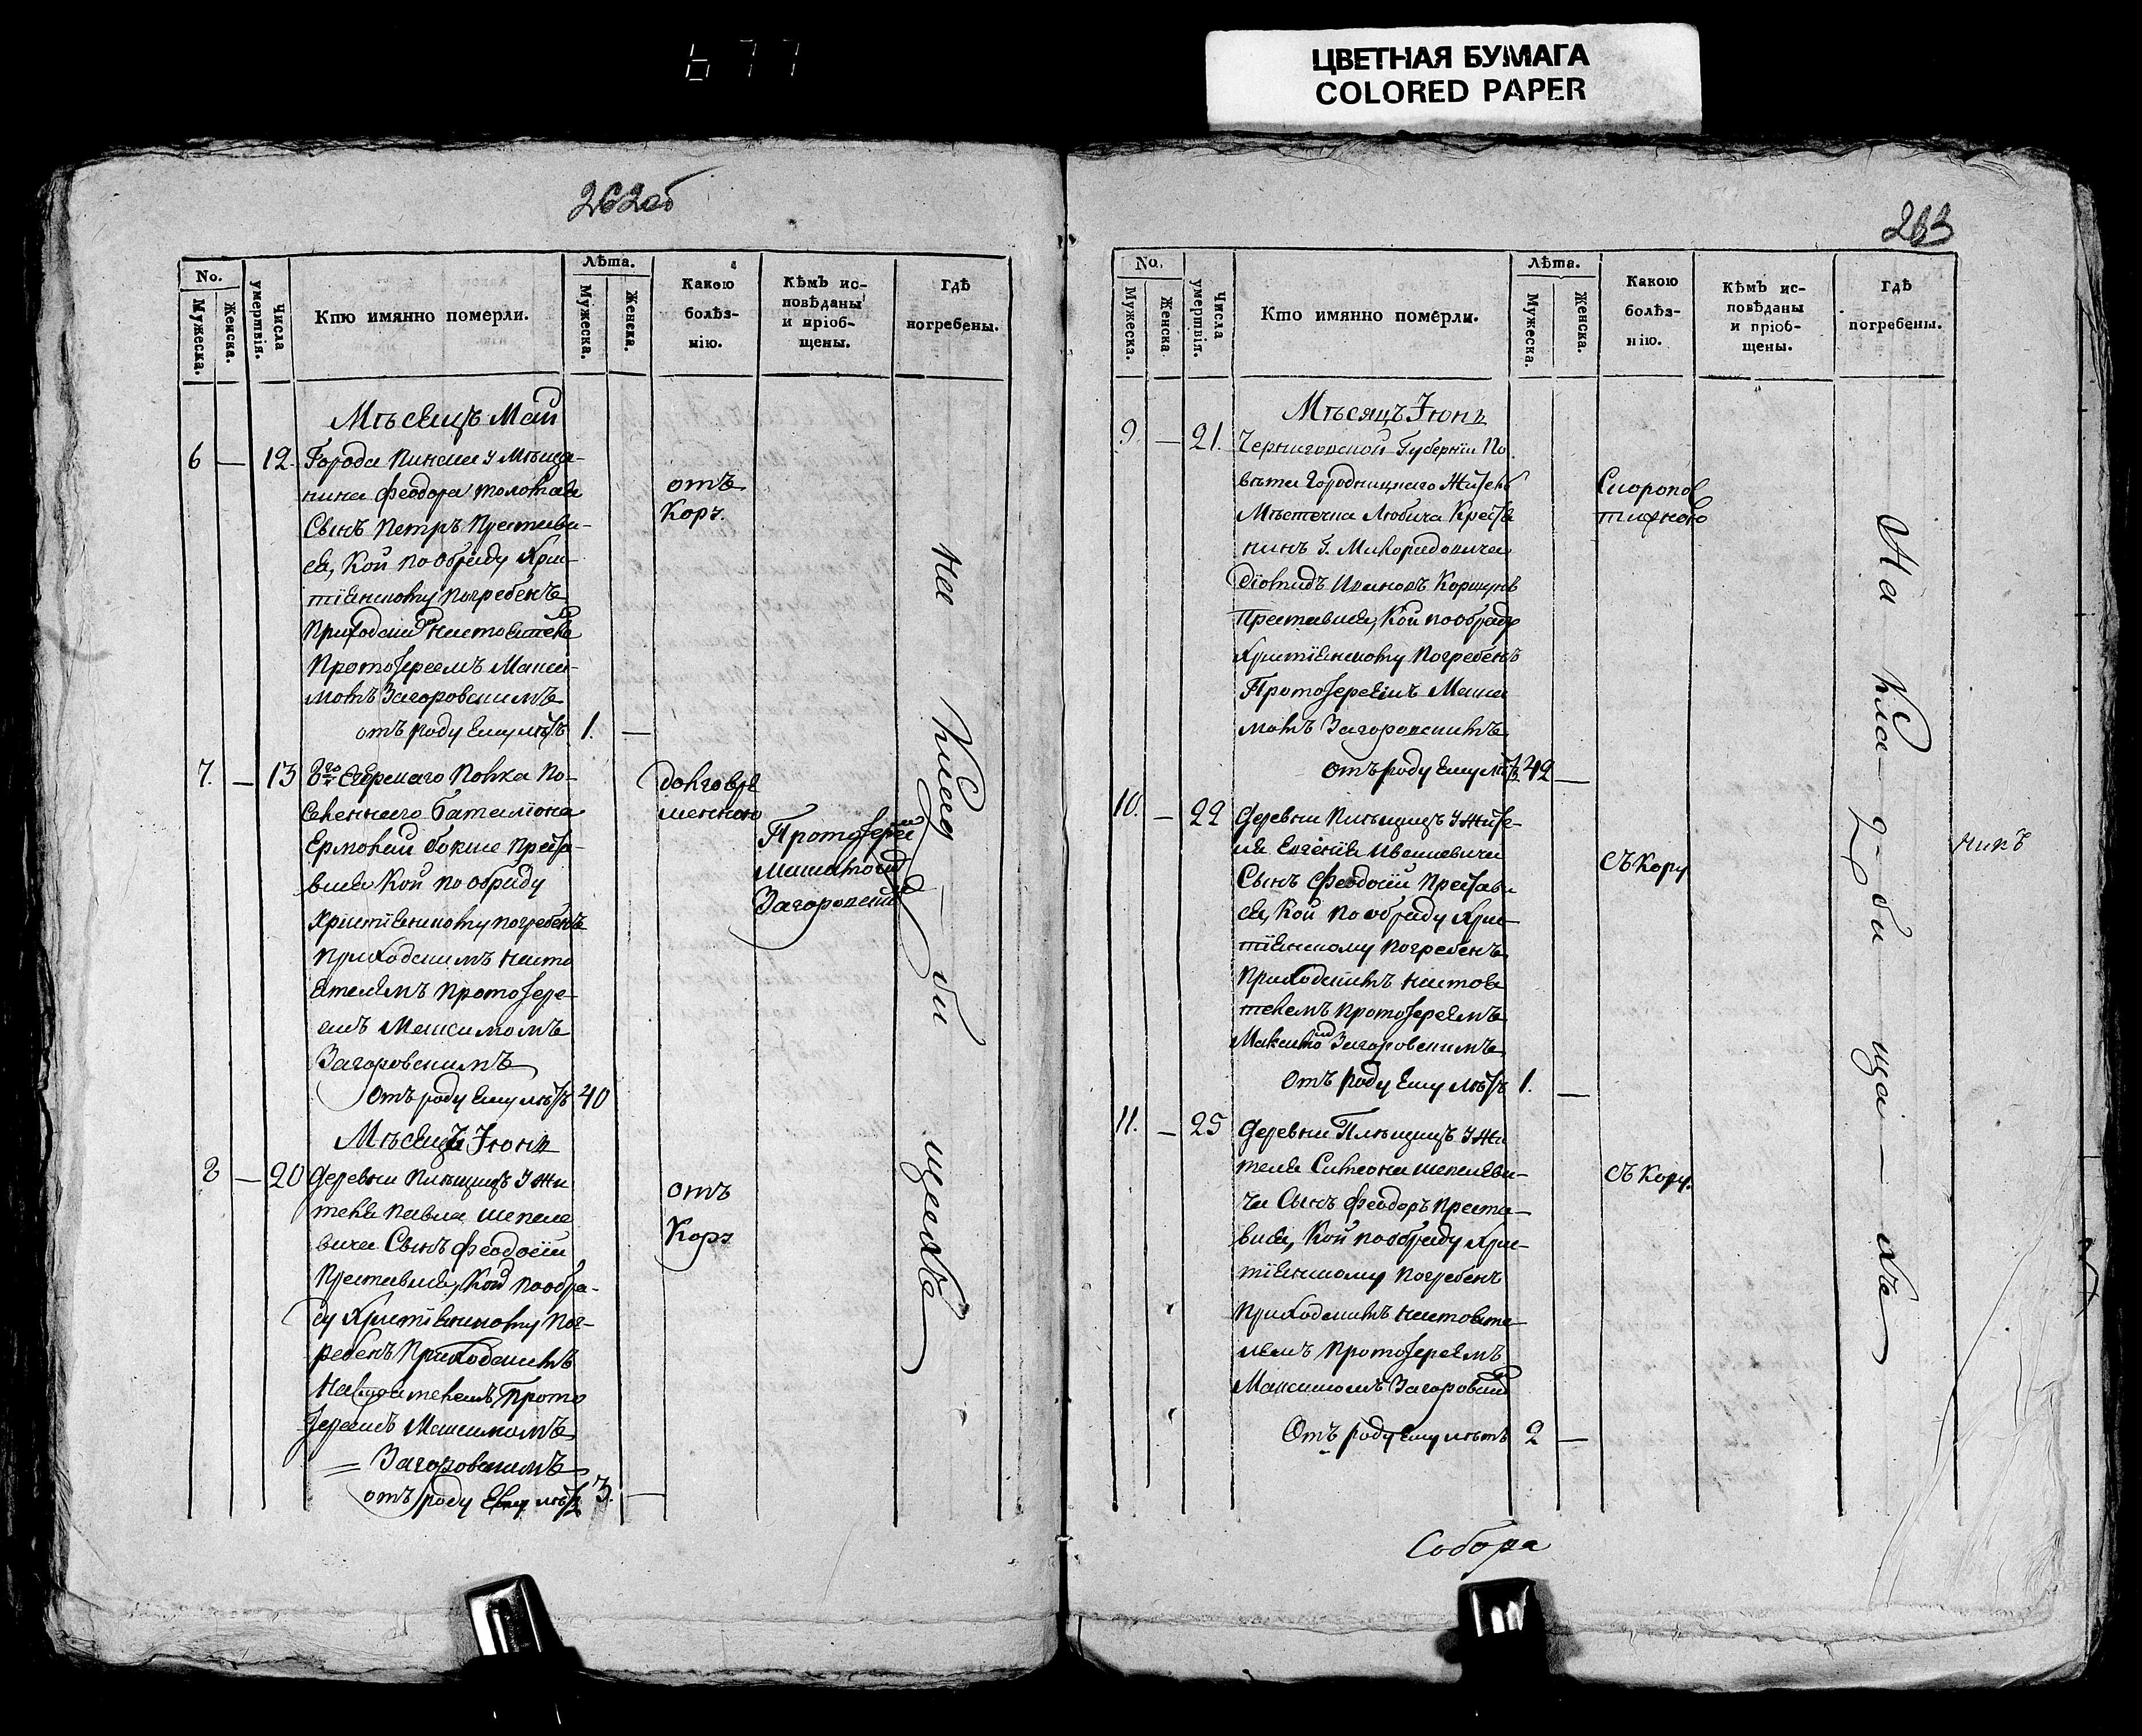 677
ЦВЕТНАЯ БУМАГА
COLORED PAPER
262об
No.
Мужеска.
Женска.
Числа умертвія.
Кто имянно померли.
Лѣта.
Мужеска.
Женска.
Какою болѣз-
нію.
Кѣмъ ис-
повѣданы
и пріоб-
щены.
Гдѣ
погребены.
Мѣсяцъ Май
6 — 12. Города Пинска Мѣща-
нина Феодора
Сынъ Петръ Престави-
ся, Кой по обряду Хрис-
тіянскому погребенъ
Приходскимъ настоятелемъ
Протоіереемъ Макси-
момъ Загоровскимъ
отъ роду Ему лѣтъ 1. —
отъ
Кору.
7. — 13 Егерскаго Полка По-
селеннаго баталіона
Преста-
вися Кой по обряду
Христіянскому погребенъ
Приходскимъ насто
ятелемъ Протоіере-
емъ Максимомъ
Загоровскимъ
Отъ роду Ему лѣтъ 40
долговре
менною
Протоіерей
Максимъ
Загоровскій
Мѣсяцъ Іюнь
8 — 20 Деревни Плещицъ Жи
теля Павла Шепеле
вича Сынъ Феодосій
Преставися, Кой по обря-
ду Христіянскому Пог-
ребенъ Приходскимъ
Настоятелемъ Прото
Іереемъ Максимомъ
Загоровскимъ
отъ роду Ему лѣтъ 3. —
отъ
Кору
на Клад — би щахъ
263
No.
Мужеска.
Женска
Числа умертвія.
Кто имянно померли.
Лѣта.
Мужеска.
Женска.
Какою
болѣз-
нію.
Кѣмъ ис-
повѣданы
и пріоб-
щены.
Гдѣ
погребены.
Мѣсяцъ Іюнь
9. — 21. Черниговской Губерніи По
вѣта Городницкаго Житель
Мѣстечка Любича Кресть
нинъ
Діомидъ Ивановъ Коршунъ
Преставися, Кой по обряду
Христіянскому Погребенъ
Протоіереемъ Макси
момъ Загоровскимъ
отъ роду Ему лѣтъ 42 —
Скоропос
тижною
10. — 22 Деревни Плещицъ Жите-
ля Евгенія Ивашевича
Сынъ Феодосій Престави
ся, Кой по обряду Хрис-
тіянскому погребенъ
Приходскимъ настоя
телемъ Протоіереемъ
Максимомъ Загоровскимъ
Отъ роду Ему лѣтъ 1. —
Съ Кору
11. — 25 Деревни Плещицъ Жи
теля Симеона Шепелеви-
ча Сынъ Феодоръ Преста-
вися, Кой по обряду Хрис-
тіянскому погребенъ
Приходскимъ настояте-
лемъ Протоіереемъ
Максимомъ Загоровскимъ
Отъ роду Ему лѣтъ 2 —
Съ Кору.
На Кла — д — би — ща — хъ
Собора